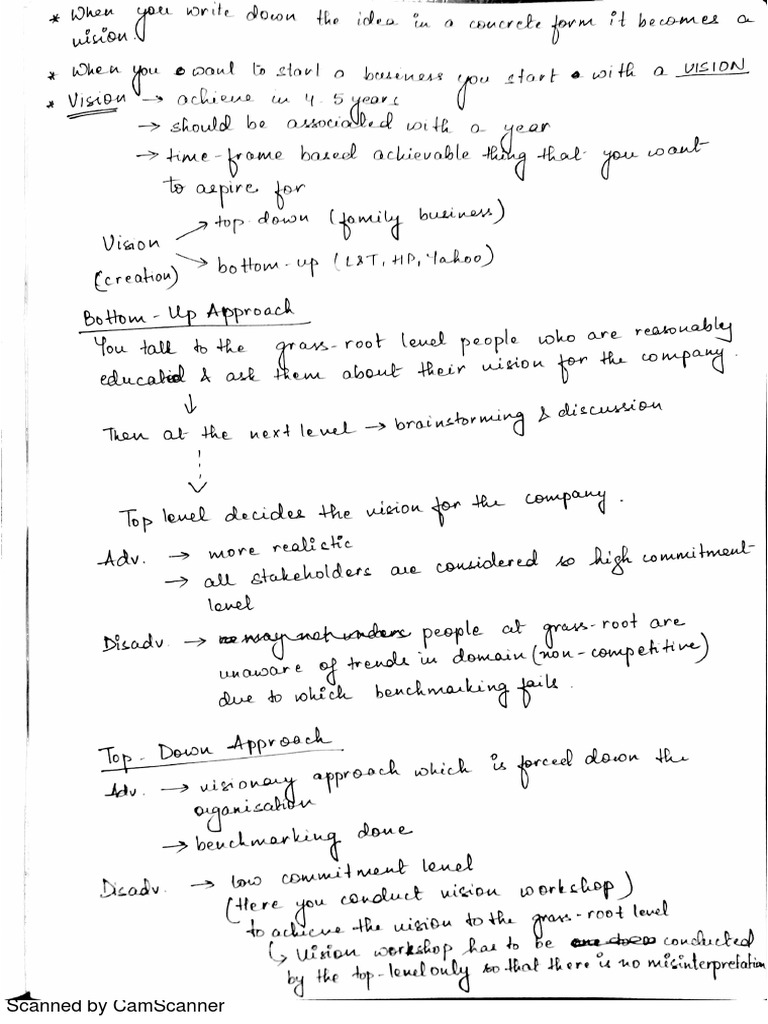 * When you write down the idea in a concrete form it becomes a
vision.
* When you want to start a business you start with a VISION
* Vision → achieve in 4-5 years
→ should be associated with a year
→ time-frame based achievable thing that you want
to aspire for
Vision → top down (family business)
(creation) → bottom-up (L&T, HP, Yahoo)
Bottom-Up Approach
You talk to the grass-root level people who are reasonably
educated & ask them about their vision for the company.
↓
Then at the next level → brainstorming & discussion
↓
Top level decides the vision for the company.
Adv. → more realistic
→ all stakeholders are considered so high commitment
level
Disadv. → people at grass-root are
unaware of trends in domain (non-competitive)
due to which benchmarking fails.
Top-Down Approach
Adv. → visionary approach which is forced down the
organisation
→ benchmarking done
Disadv. → low commitment level
(Here you conduct vision workshop)
to achieve the vision to the grass-root level
↳ Vision workshop has to be conducted
by the top-level only so that there is no misinterpretation
Scanned by CamScanner